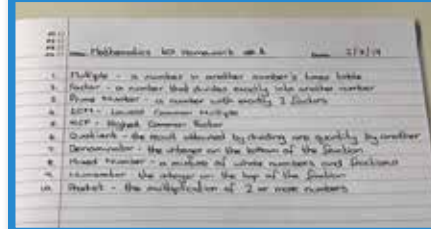 Mathematics KO Homework wk 2 2/9/19
1. Multiple - a number in another number's times table
2. Factor - a number that divides exactly into another number
3. Prime Number - a number with exactly 2 factors
4. LCM - Lowest Common Multiple
5. HCF - Highest Common Factor
6. Quotient - the result obtained by dividing one quantity by another
7. Denominator - the integer on the bottom of the fraction
8. Mixed Number - a mixture of whole numbers and fractions
9. Numerator - the integer on the top of the fraction
10. Product - the multiplication of 2 or more numbers